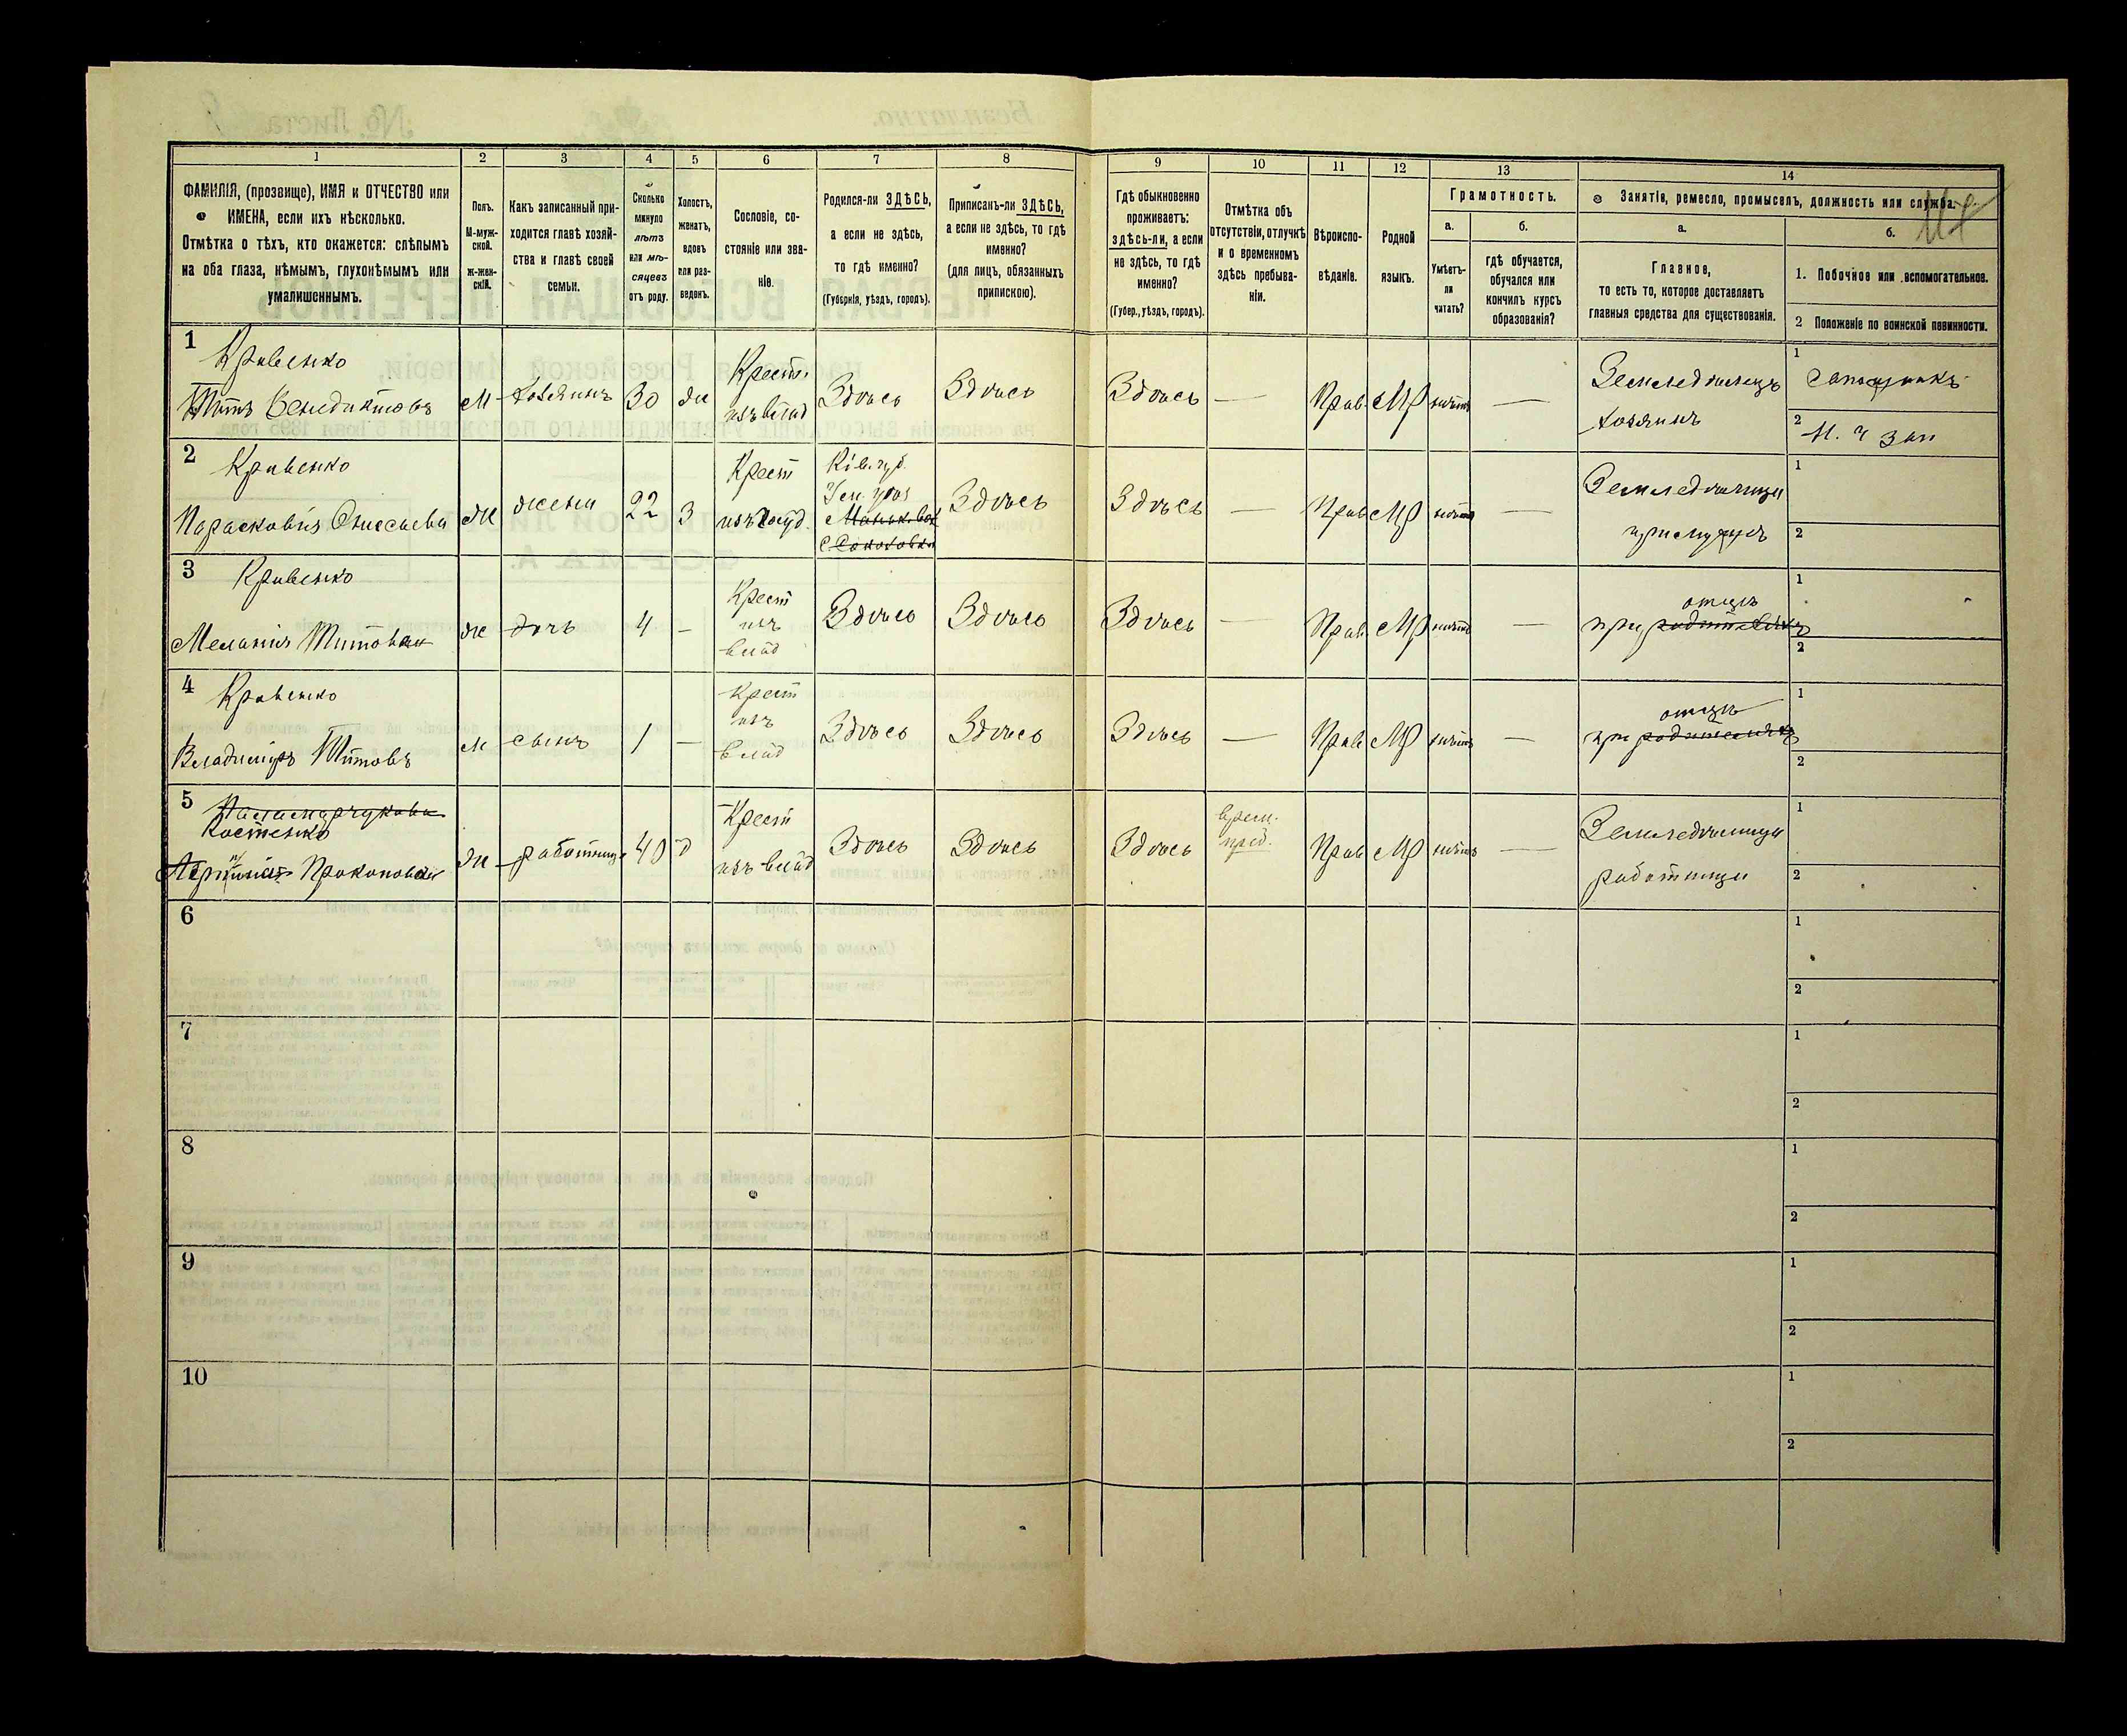 1 2 3 4 5 6 7 8 9 10 11 12 13 14
ФАМИЛІЯ, (прозвище), ИМЯ и ОТЧЕСТВО или
ИМЕНА, если ихъ нѣсколько.
Отмѣтка о тѣхъ, кто окажется: слѣпымъ
на оба глаза, нѣмымъ, глухонѣмымъ или
умалишеннымъ.
Полъ.
М-муж-
ской.
ж-жен-
скій.
Какъ записанный при-
ходится главѣ хозяй-
ства и главѣ своей
семьи.
Сколько
минуло
лѣтъ
или мѣ-
сяцевъ
отъ роду.
Холостъ,
женатъ,
вдовъ
или раз-
веденъ.
Сословіе, со-
стояніе или зва-
ніе.
Родился-ли ЗДѢСЬ,
а если не здѣсь,
то гдѣ именно?
(Губернія, уѣздъ, городъ).
Приписанъ-ли ЗДѢСЬ,
а если не здѣсь, то гдѣ
именно?
(для лицъ, обязанныхъ
припискою).
Гдѣ обыкновенно
проживаетъ:
здѣсь-ли, а если
не здѣсь, то гдѣ
именно?
(Губер., уѣздъ, городъ).
Отмѣтка объ
отсутствіи, отлучкѣ
и о временномъ
здѣсь пребыва-
ніи.
Вѣроиспо-
вѣданіе.
Родной
языкъ.
Грамотность.
а.
Умѣетъ-
ли
читать?
б.
гдѣ обучается,
обучался или
кончилъ курсъ
образованія?
Занятіе, ремесло, промыселъ, должность или служба.
а.
Главное,
то есть то, которое доставляетъ
главныя средства для существованія.
б.
1. Побочное или вспомогательное.
2 Положеніе по воинской повинности.
1 Кривенко
Титъ Венедиктовъ
М
хозяинъ
30
ж
Крест.
изъ влад
Здѣсь
Здѣсь
Здѣсь
—
Прав
МР
нѣтъ
—
Земледѣлецъ
хозяинъ
1
2
2 Кривенко
Парасковія
ж
жена
22
З
Крест
Кіев. губ.
Здѣсь
Здѣсь
—
Прав
МР
нѣтъ
—
при мужѣ
1
2
3 Кривенко
Меланія Титова
ж
дочь
4
–
Крест
изъ
влад
Здѣсь
Здѣсь
Здѣсь
—
Прав
МР
нѣтъ
—
отцѣ
при родителяхъ
1
2
4 Кривенко
Владиміръ Титовъ
м
сынъ
1
—
Крест
изъ
влад
Здѣсь
Здѣсь
Здѣсь
—
Прав
МР
нѣтъ
—
отцѣ
при родителяхъ
1
2
5
Костенко
Прокопова
ж
работница
40
Крест
изъ влад
Здѣсь
Здѣсь
Здѣсь
врем.
преб.
Прав
МР
нѣтъ
—
Земледѣлица
работница
1
2
6
1
2
7
1
2
8
1
2
9
1
2
10
1
2